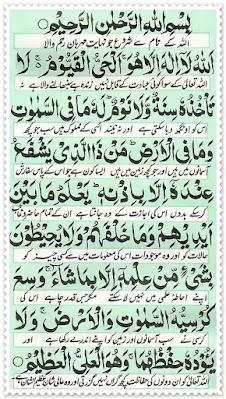 بِسْمِ اللهِ الرَّحْمٰنِ الرَّحِيْمِ
اللہ کے نام سے شروع جو نہایت مہربان رحم والا
اَللهُ لَاۤ اِلٰهَ اِلَّا هُوَ اَلْحَيُّ الْقَيُّوْمُ لَا
اللہ تعالیٰ کے سوا کوئی عبادت کے قابل نہیں زندہ ہے سنبھالنے والا ہے نہ
تَاْخُذُهٗ سِنَةٌ وَّلَا نَوْمٌ لَهٗ مَا فِي السَّمٰوٰتِ
اس کو اونگھ دبا سکتی ہے اور نہ نیند اسی کے مملوک ہیں سب جو کچھ
وَمَا فِي الْاَرْضِ مَنْ ذَا الَّذِيْ يَشْفَعُ
آسمانوں میں ہیں اور جو کچھ زمین میں ہیں ایسا کون ہے جو اس کے پاس سفارش
عِنْدَهٗۤ اِلَّا بِاِذْنِهٖ يَعْلَمُ مَا بَيْنَ
کر سکے بدوں اس کی اجازت کے وہ جانتا ہے ان کے تمام حاضر و غائب
اَيْدِيْهِمْ وَمَا خَلْفَهُمْ وَلَا يُحِيْطُوْنَ
حالات کو اور وہ موجودات اس کی معلومات میں سے کسی چیز کو
بِشَيْءٍ مِّنْ عِلْمِهٖۤ اِلَّا بِمَا شَآءَ وَسِعَ
اپنے احاطہ علمی میں نہیں لا سکتے مگر جس قدر چاہے اس کی
كُرْسِيُّهُ السَّمٰوٰتِ وَالْاَرْضَ وَلَا
کرسی نے سب آسمانوں اور زمین کو اپنے اندر لے رکھا ہے اور
يَئُوْدُهٗ حِفْظُهُمَا وَهُوَ الْعَلِيُّ الْعَظِيْمُ
اللہ تعالیٰ کو ان دونوں کی حفاظت کچھ گراں نہیں گزرتی اور وہ عالی شان عظیم الشان ہے